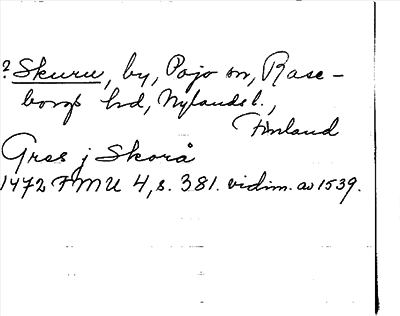 ? Skuru, by, Pojo sn, Rase-
borgs hd, Nylands l.,
Finland
Gres j Skorå
1472 FMU 4, s. 381. vidim. av 1539.